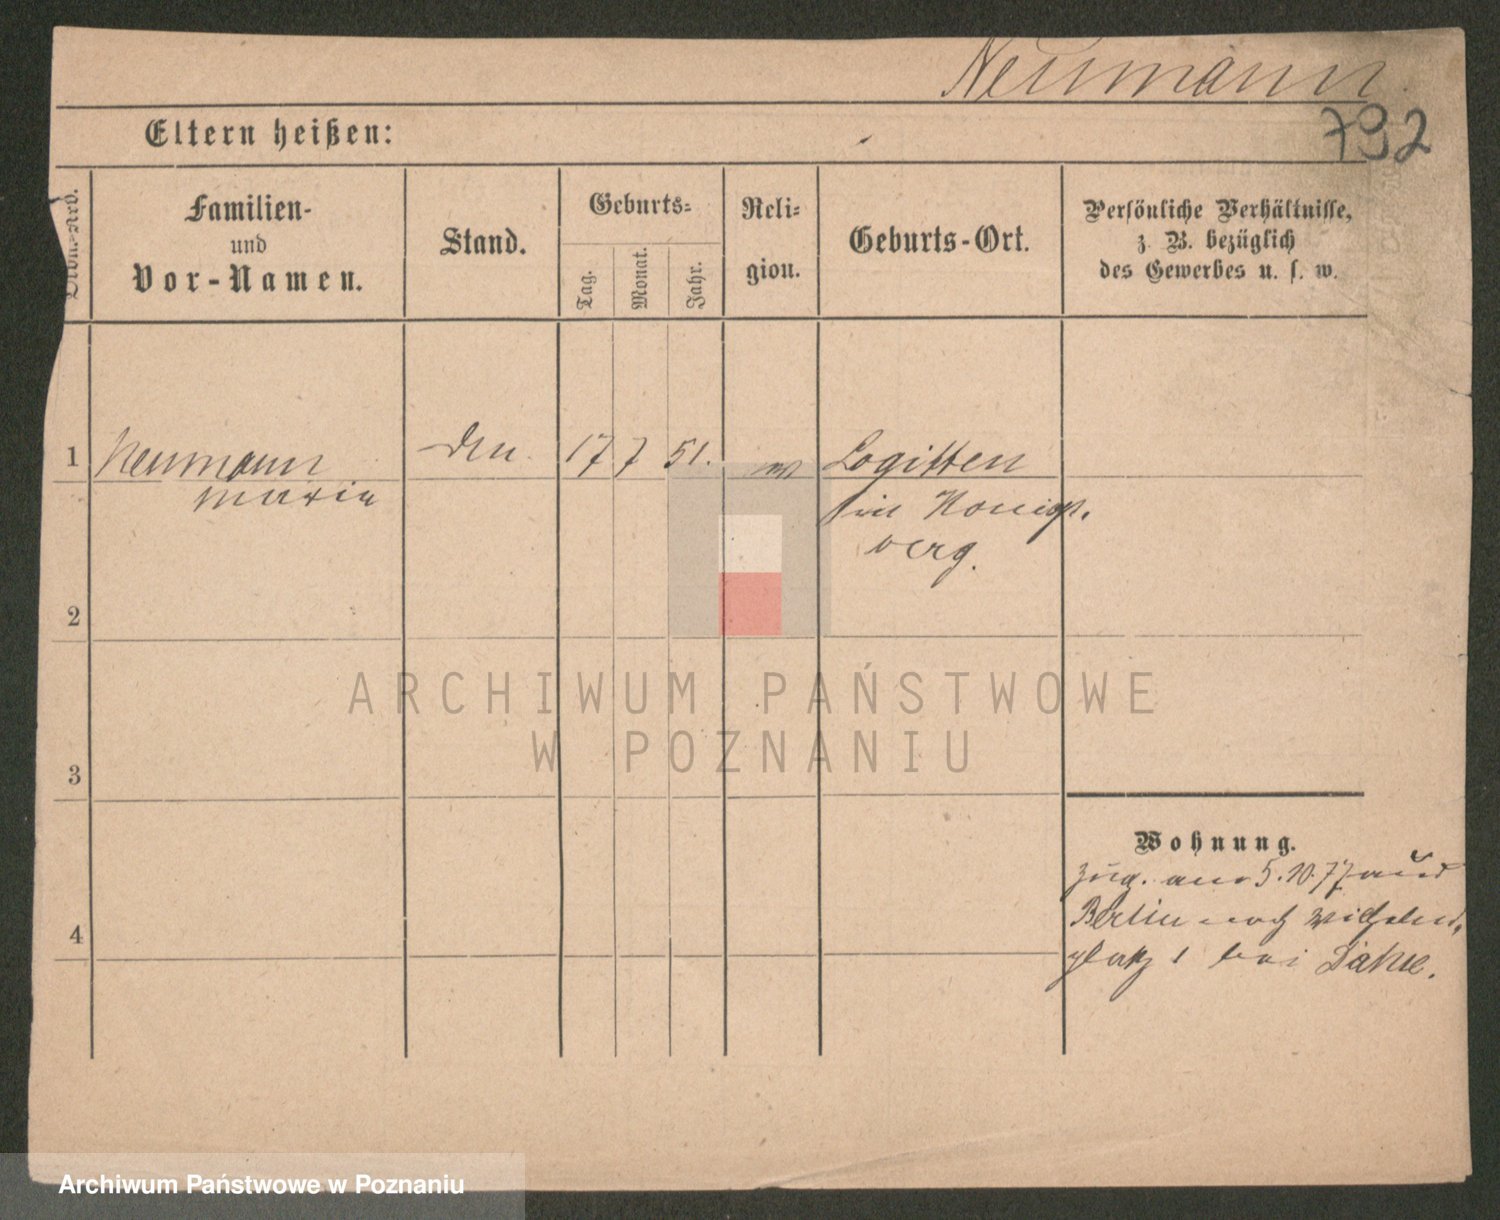 Neumann
792
Eltern heißen:
Familien-
und
Vor-Namen.
Stand.
Geburts-
Tag.
Monat.
Jahr.
Reli-
gion.
Geburts-Ort.
Persönliche Verhältnisse,
z. B. bezüglich
des Gewerbes u. s. w.
1 Neumann 17 7 51. Logitten
Maria
in Königs-
berg.
2
3
4
Wohnung.
Zug. am 5.10.77 aus
Berlin nach Wilhelms-
platz 1 bei
ARCHIWUM PAŃSTWOWE
W POZNANIU
Archiwum Państwowe w Poznaniu